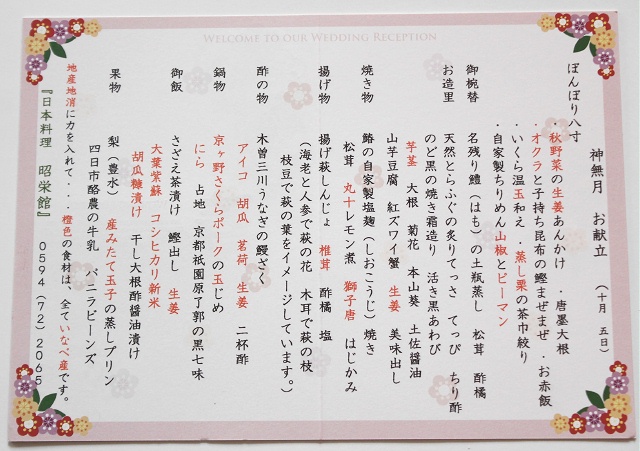 WELCOME TO OUR WEDDING RECEPTION
神無月 お献立 (十月 五日)
ぼんぼり八寸
秋野菜の生姜あんかけ ・唐墨大根
・オクラと子持ち昆布の鰹まぜまぜ ・お赤飯
・いくら温玉和え ・蒸し栗の茶巾絞り
・自家製ちりめん山椒とピーマン
御椀替 名残り鱧(はも)の土瓶蒸し 松茸 酢橘
お造里 天然とらふぐの炙りてっさ てっぴ ちり酢
のど黒の焼き霜造り 活き黒あわび
芋茎 大根 菊花 本山葵 土佐醤油
山芋豆腐 紅ズワイ蟹 生姜 美味出し
焼き物 鰆の自家製塩麹(しおこうじ)焼き
松茸 丸十レモン煮 獅子唐 はじかみ
揚げ物 揚げ萩しんじょ 椎茸 酢橘 塩
(海老と人参で萩の花 木耳で萩の枝
枝豆で萩の葉をイメージしています。)
酢の物 木曽三川うなぎの鰻ざく
アイコ 胡瓜 茗荷 生姜 二杯酢
鍋物 京ヶ野さくらポークの玉じめ
にら 占地 京都祇園原了郭の黒七味
御飯 さざえ茶漬け 鰹出し 生姜
大葉紫蘇 コシヒカリ新米
胡瓜糠漬け 干し大根酢醤油漬け
果物 梨(豊水) 産みたて玉子の蒸しプリン
四日市酪農の牛乳 バニラビーンズ
地産地消に力を入れて・・・橙色の食材は、全ていなべ産です。
『日本料理 昭栄館』 0594(72)2065